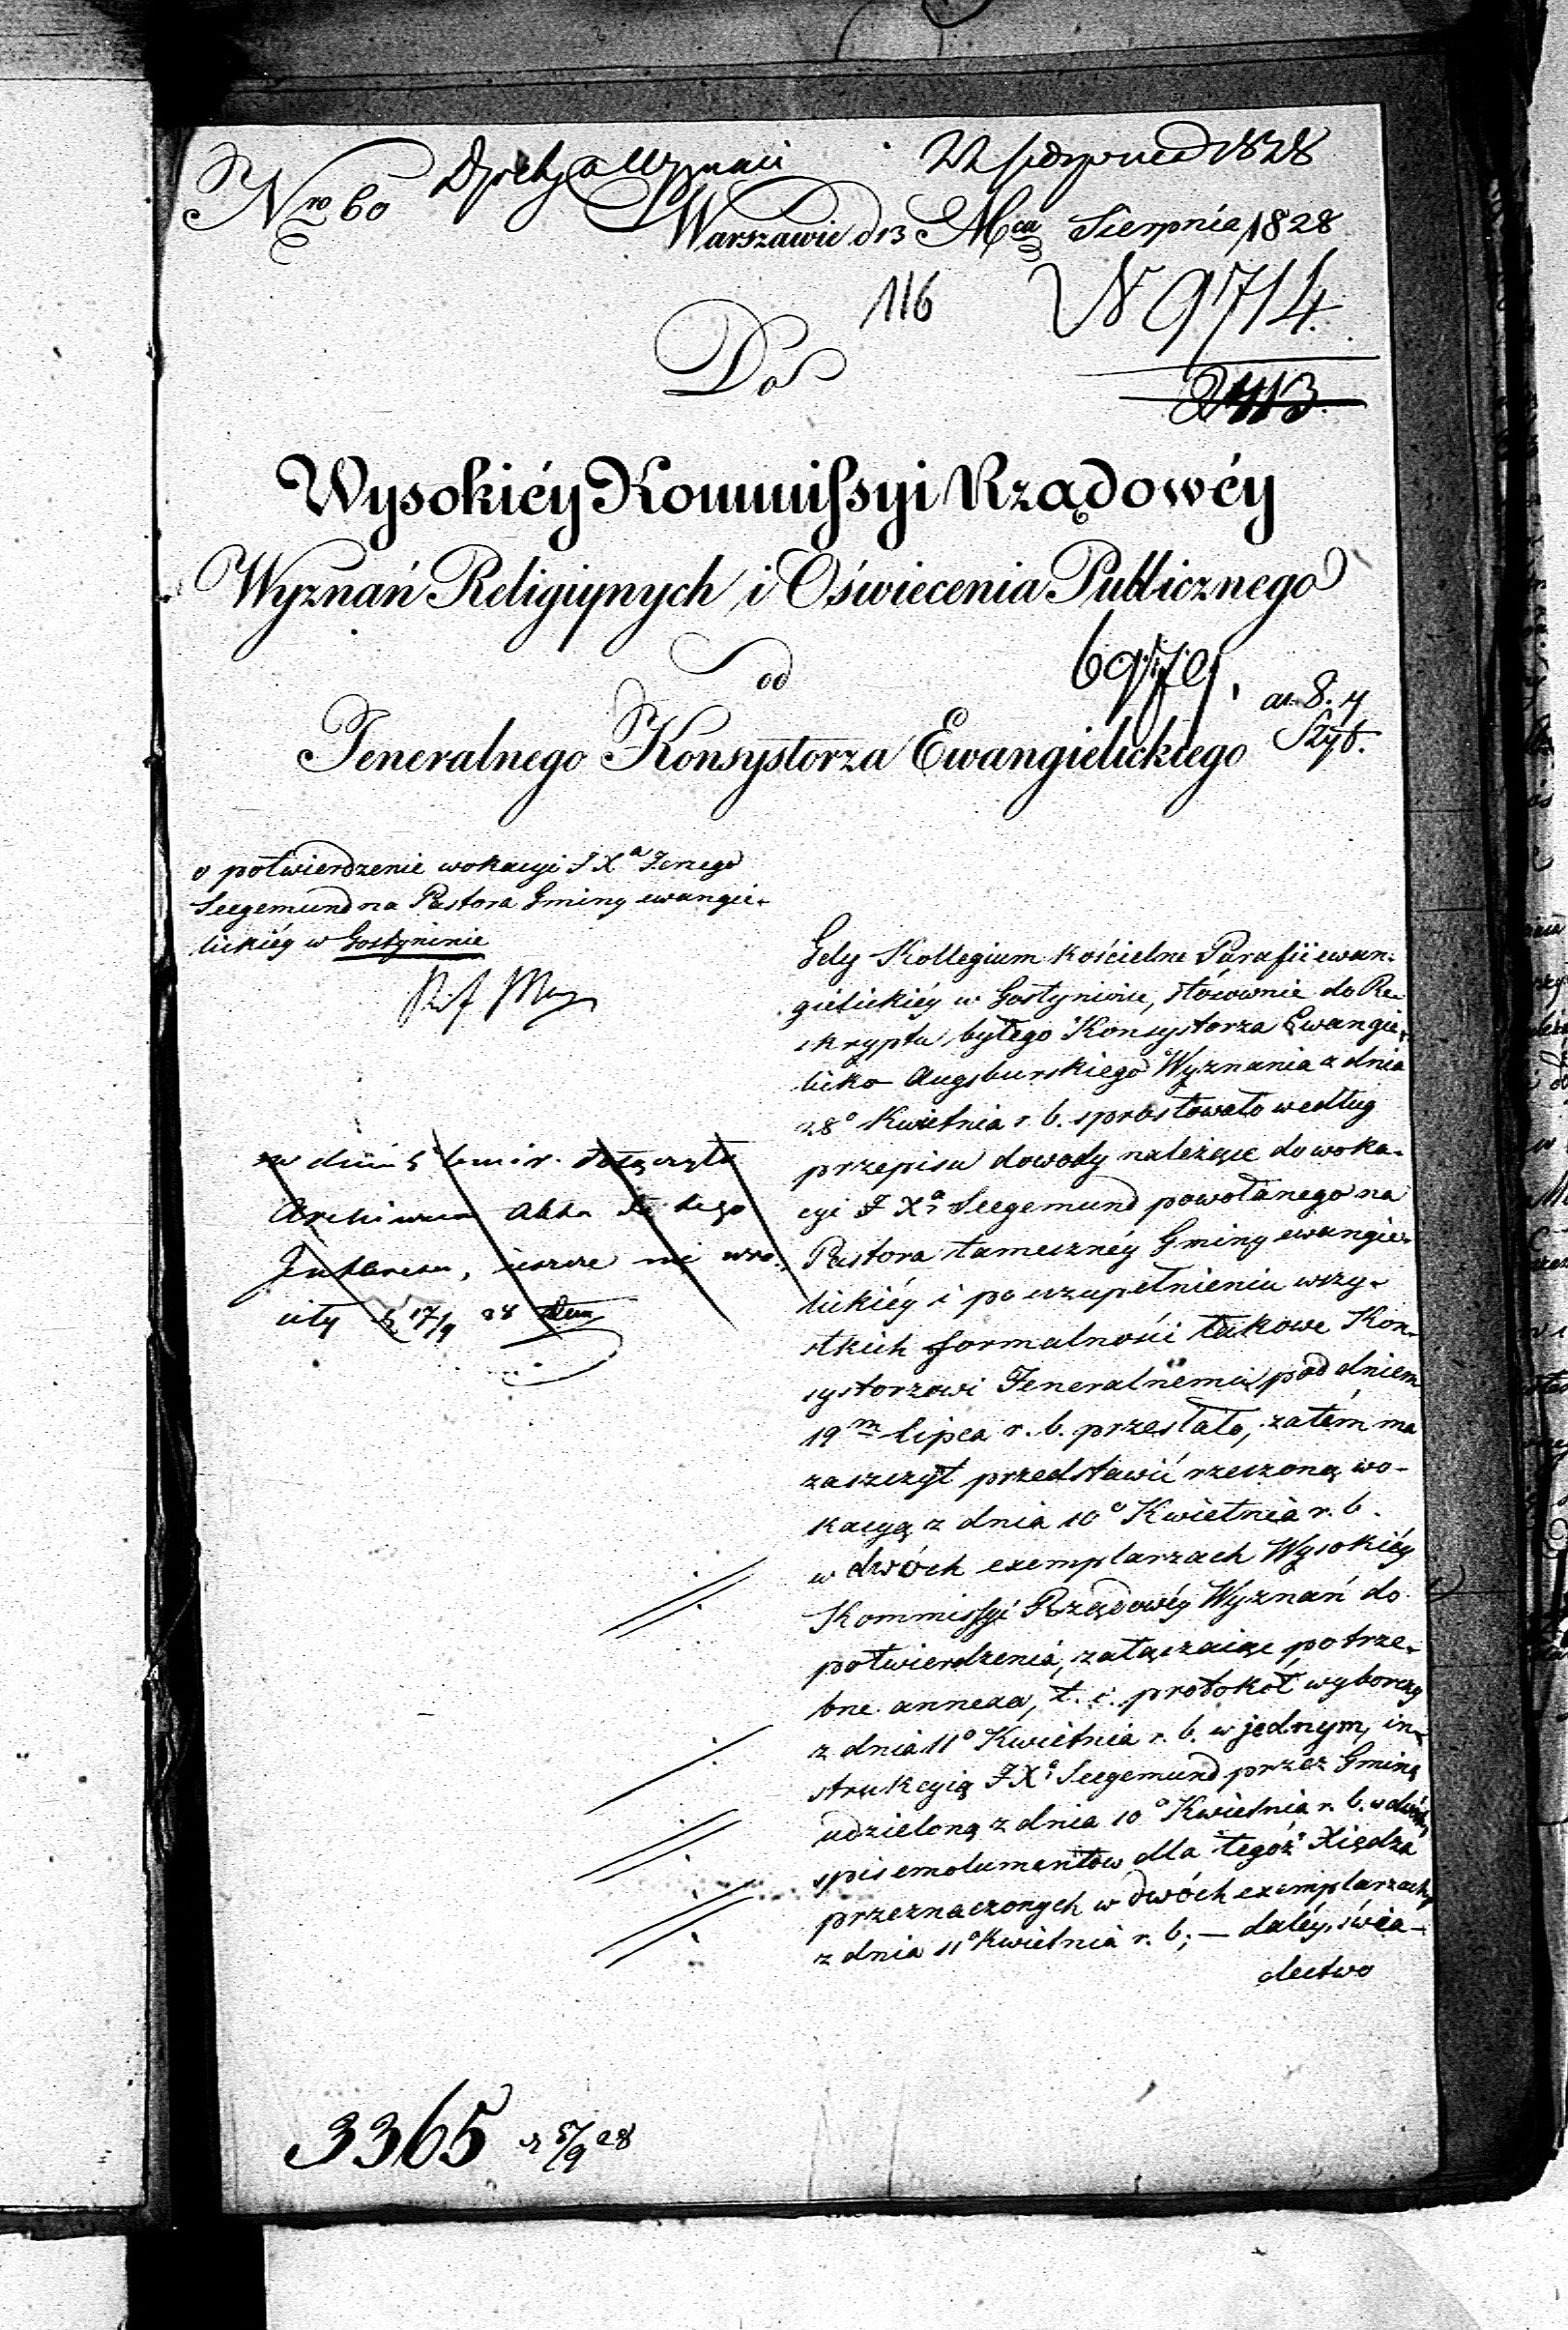 Nro 60
22 Sierpnia 1828
Warszawie d 13 Mca Sierpnia 1828
116 N 9714.
Do 2413.
Wysokiéy Kommissyi Rządowéy
Wyznań Religiynych i Oświecenia Publicznego
od
Jeneralnego Konsystorza Ewangielickiego
o potwierdzenie wokacyi J Xa
Seegemund na Pastora Gminy ewangie-
lickiéy w Gostyninie
Gdy Kollegium kościelne Parafii ewan-
gielickiéy w Gostyninie, stósownie do Re-
skryptu byłego Konsystorza Ewangie-
licko Augsburskiego Wyznania z dnia
28o Kwietnia r. b. sprostowało według
przepisu dowody należące do woka-
cyi J Xa Seegemund powołanego na
Pastora tameczney Gminy ewangie-
lickiéy i po uzupełnieniu wszy-
stkich formalności takowe Kon-
systorzowi Jeneralnemu pod dniem
19m lipca r. b. przesłało, zatém ma
zaszczyt przedstawić rzeczoną wo-
kacyą z dnia 10o Kwietnia r. b.
w dwóch exemplarzach Wysokiéy
Kommissyi Rządowéy Wyznań do
potwierdzenia, załączaiąc potrze-
bne annexa, t. i. protokół wyborczy
z dnia 11o Kwietnia r. b. w jednym, in-
strukcyią J Xa Seegemund przez Gminę
udzieloną z dnia 10o Kwietnia r. b. w dwóch,
spis emolumentów dla tegoż Xiędza
przeznaczonych w dwóch exemplarzach
z dnia 11o Kwietnia r. b; — daléy świa-
dectwo
w dniu 5
Archiwum Akta do tego
Interesu, ieszcze nie wró-
ciły 17/9 28
3365 5/9 28